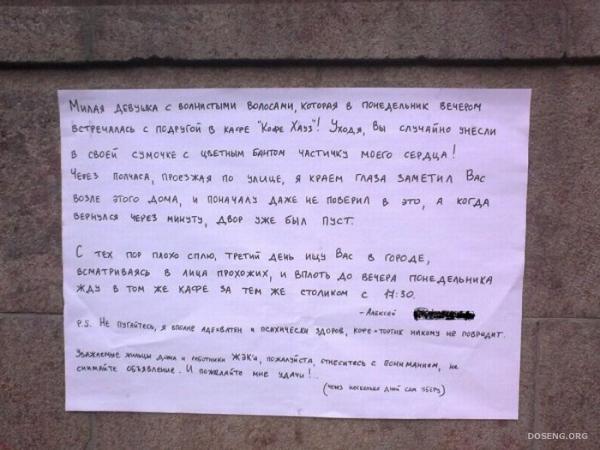 Милая девушка с волнистыми волосами, которая в понедельник вечером
встречалась с подругой в кафе "Кофе Хауз"! Уходя, Вы случайно унесли
в своей сумочке с цветным бантом частичку моего сердца!
Через полчаса, проезжая по улице, я краем глаза заметил Вас
возле этого дома, и поначалу даже не поверил в это, а когда
вернулся через минуту, двор уже был пуст.
С тех пор плохо сплю, третий день ищу Вас в городе,
всматриваясь в лица прохожих, и вплоть до вечера понедельника
жду в том же кафе за тем же столиком с 17:30.
- Алексей
P.S. Не пугайтесь, я вполне адекватен и психически здоров, кофе+тортик никому не повредит.
Уважаемые жильцы дома и работники ЖЭК'а, пожалуйста, отнеситесь с пониманием, не
снимайте объявление. И пожелайте мне удачи!..
(через несколько дней сам уберу)
DOSENG.ORG